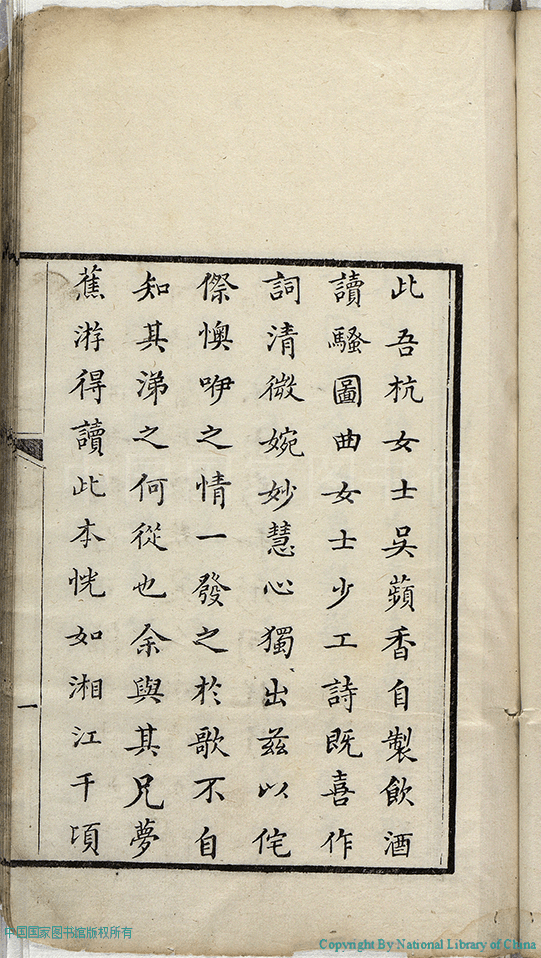 此吾杭女士吳蘋香自製飲酒
讀騷圖曲女士少工詩既喜作
詞清微婉妙慧心獨出茲以侘
傺懊咿之情一發之於歌不自
知其涕之何從也余與其兄夢
蕉游得讀此本恍如湘江千頃
一
中国国家图书馆版权所有
Copyright By National Library of China